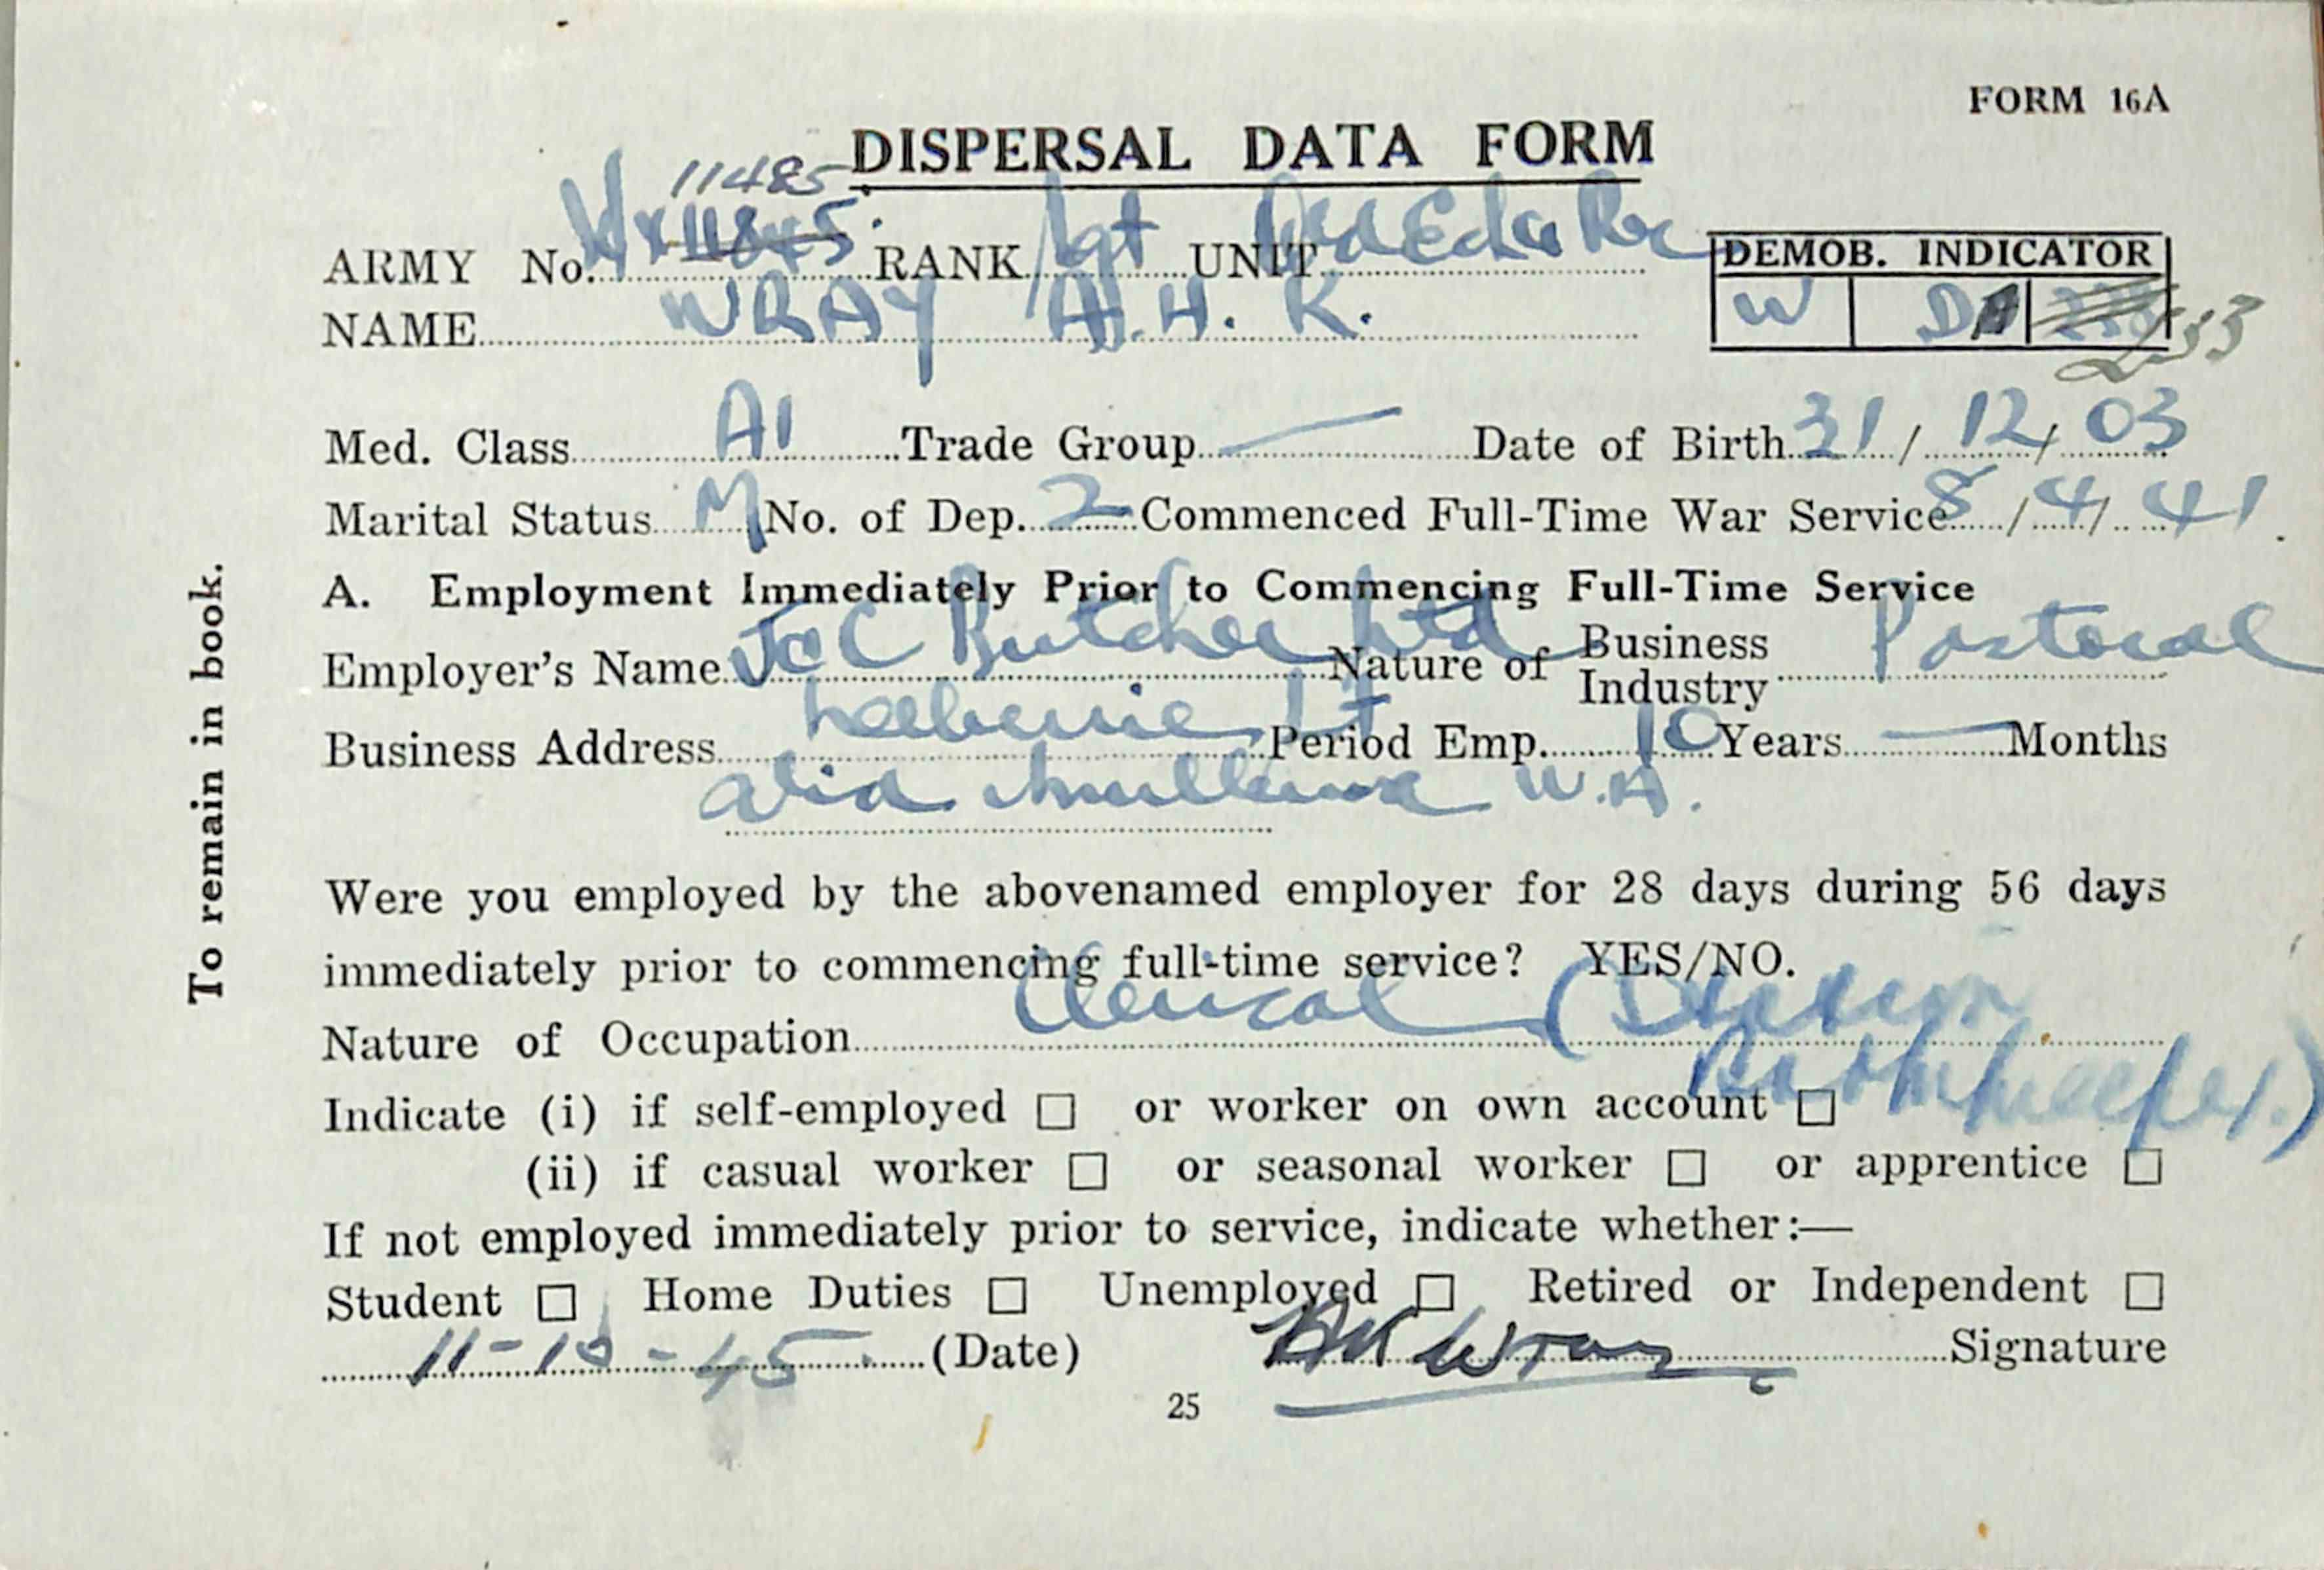 FORM 16A
DISPERSAL DATA FORM
11485
ARMY No. WX11845. RANK Sgt UNIT
DEMOB. INDICATOR
NAME WRAY A. H. K.
W DA 233
Med. Class A1 Trade Group — Date of Birth 31/12/03
Marital Status M No. of Dep. 2 Commenced Full-Time War Service 8/4/41
A. Employment Immediately Prior to Commencing Full-Time Service
Employer's Name J&C Butcher Ltd Nature of Business Industry Pastoral
Business Address Period Emp. 10 Years — Months
Mullewa W.A.
Were you employed by the abovenamed employer for 28 days during 56 days
immediately prior to commencing full-time service? YES/NO.
Nature of Occupation Clerical (Station
Bookkeeper.)
Indicate (i) if self-employed □ or worker on own account □
(ii) if casual worker □ or seasonal worker □ or apprentice □
If not employed immediately prior to service, indicate whether:—
Student □ Home Duties □ Unemployed □ Retired or Independent □
11-10-45. (Date) AHK Wray Signature
25
To remain in book.